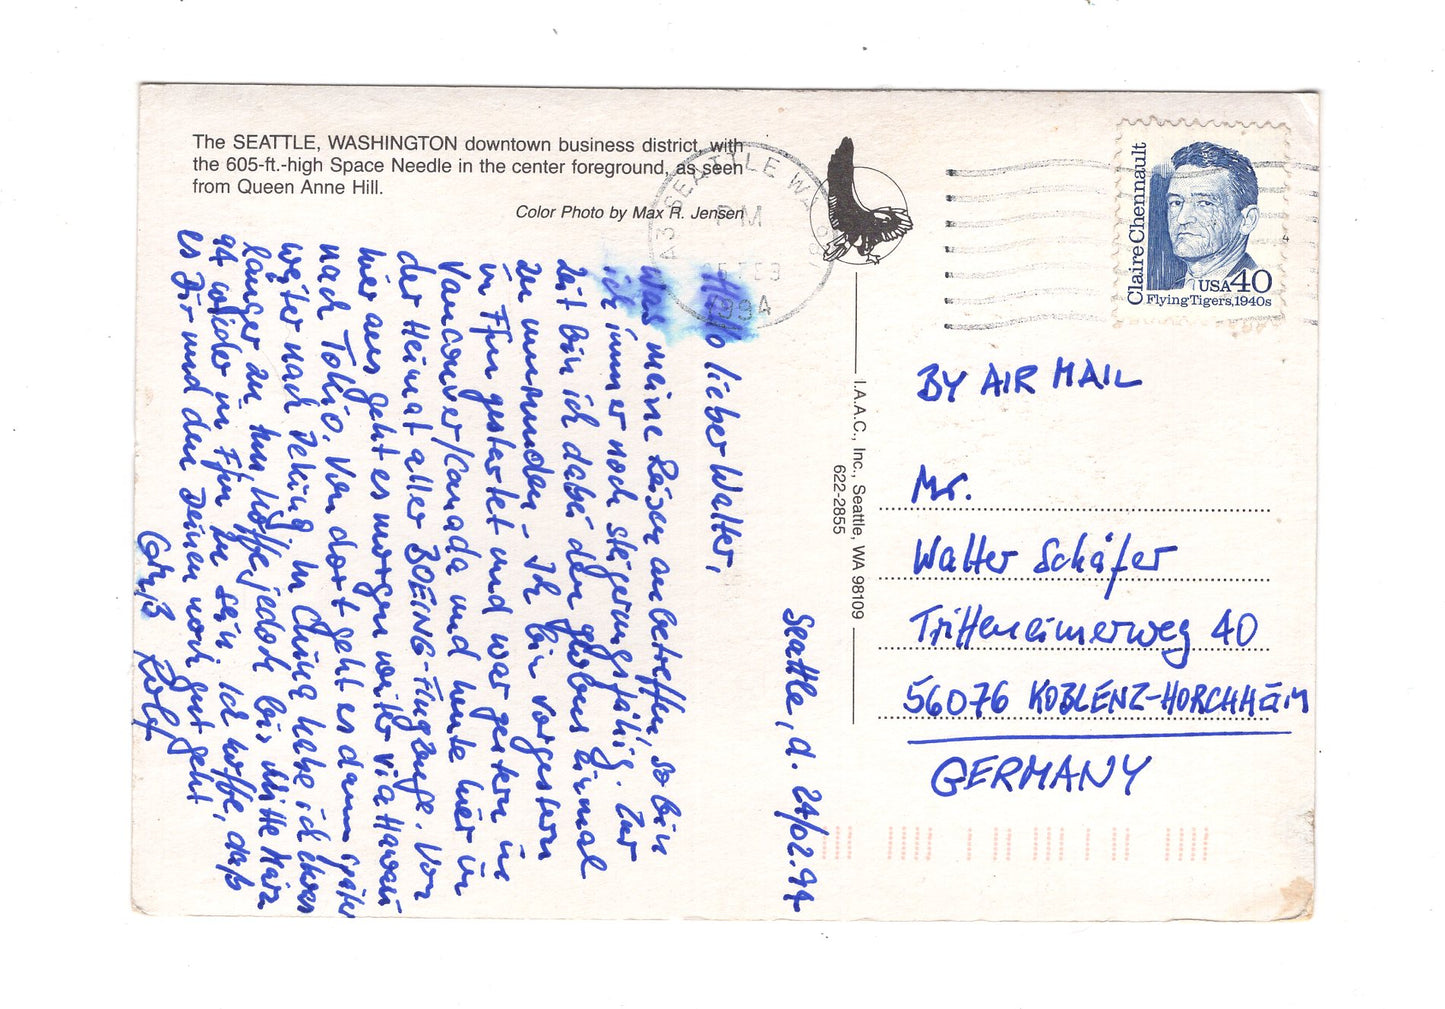 The SEATTLE, WASHINGTON downtown business district, with
the 605-ft.-high Space Needle in the center foreground, as seen
from Queen Anne Hill.
Color Photo by Max R. Jensen
A3 SEATTLE WA
PM
FEB
1994
Claire Chennault
USA 40
Flying Tigers, 1940s
I.A.A.C., Inc., Seattle, WA 98109
622-2855
Seattle, d. 24/02.94
Hallo lieber Walter,
Was meine Reisen anbetreffen, so bin
ich immer noch steigerungsfähig. Zur
Zeit bin ich dabei den Globus einmal
zu umrunden - Ich bin vorgestern
in Ffm gestartet und war gestern in
Vancouver/Canada und heute hier in
der Heimat aller BOEING-Flugzeuge. Von
hier aus geht es morgen weiter via Hawaii
nach Tokio. Von dort geht es dann später
weiter nach Peking. In China habe ich etwas
länger zu tun, hoffe jedoch bis Mitte März
94 wieder in Ffm zu sein. Ich hoffe, daß
es Dir und den Deinen noch gut geht,
Gruß Rolf
BY AIR MAIL
Mr.
Walter Schäfer
Trittenheimerweg 40
56076 KOBLENZ-HORCHHEIM
GERMANY